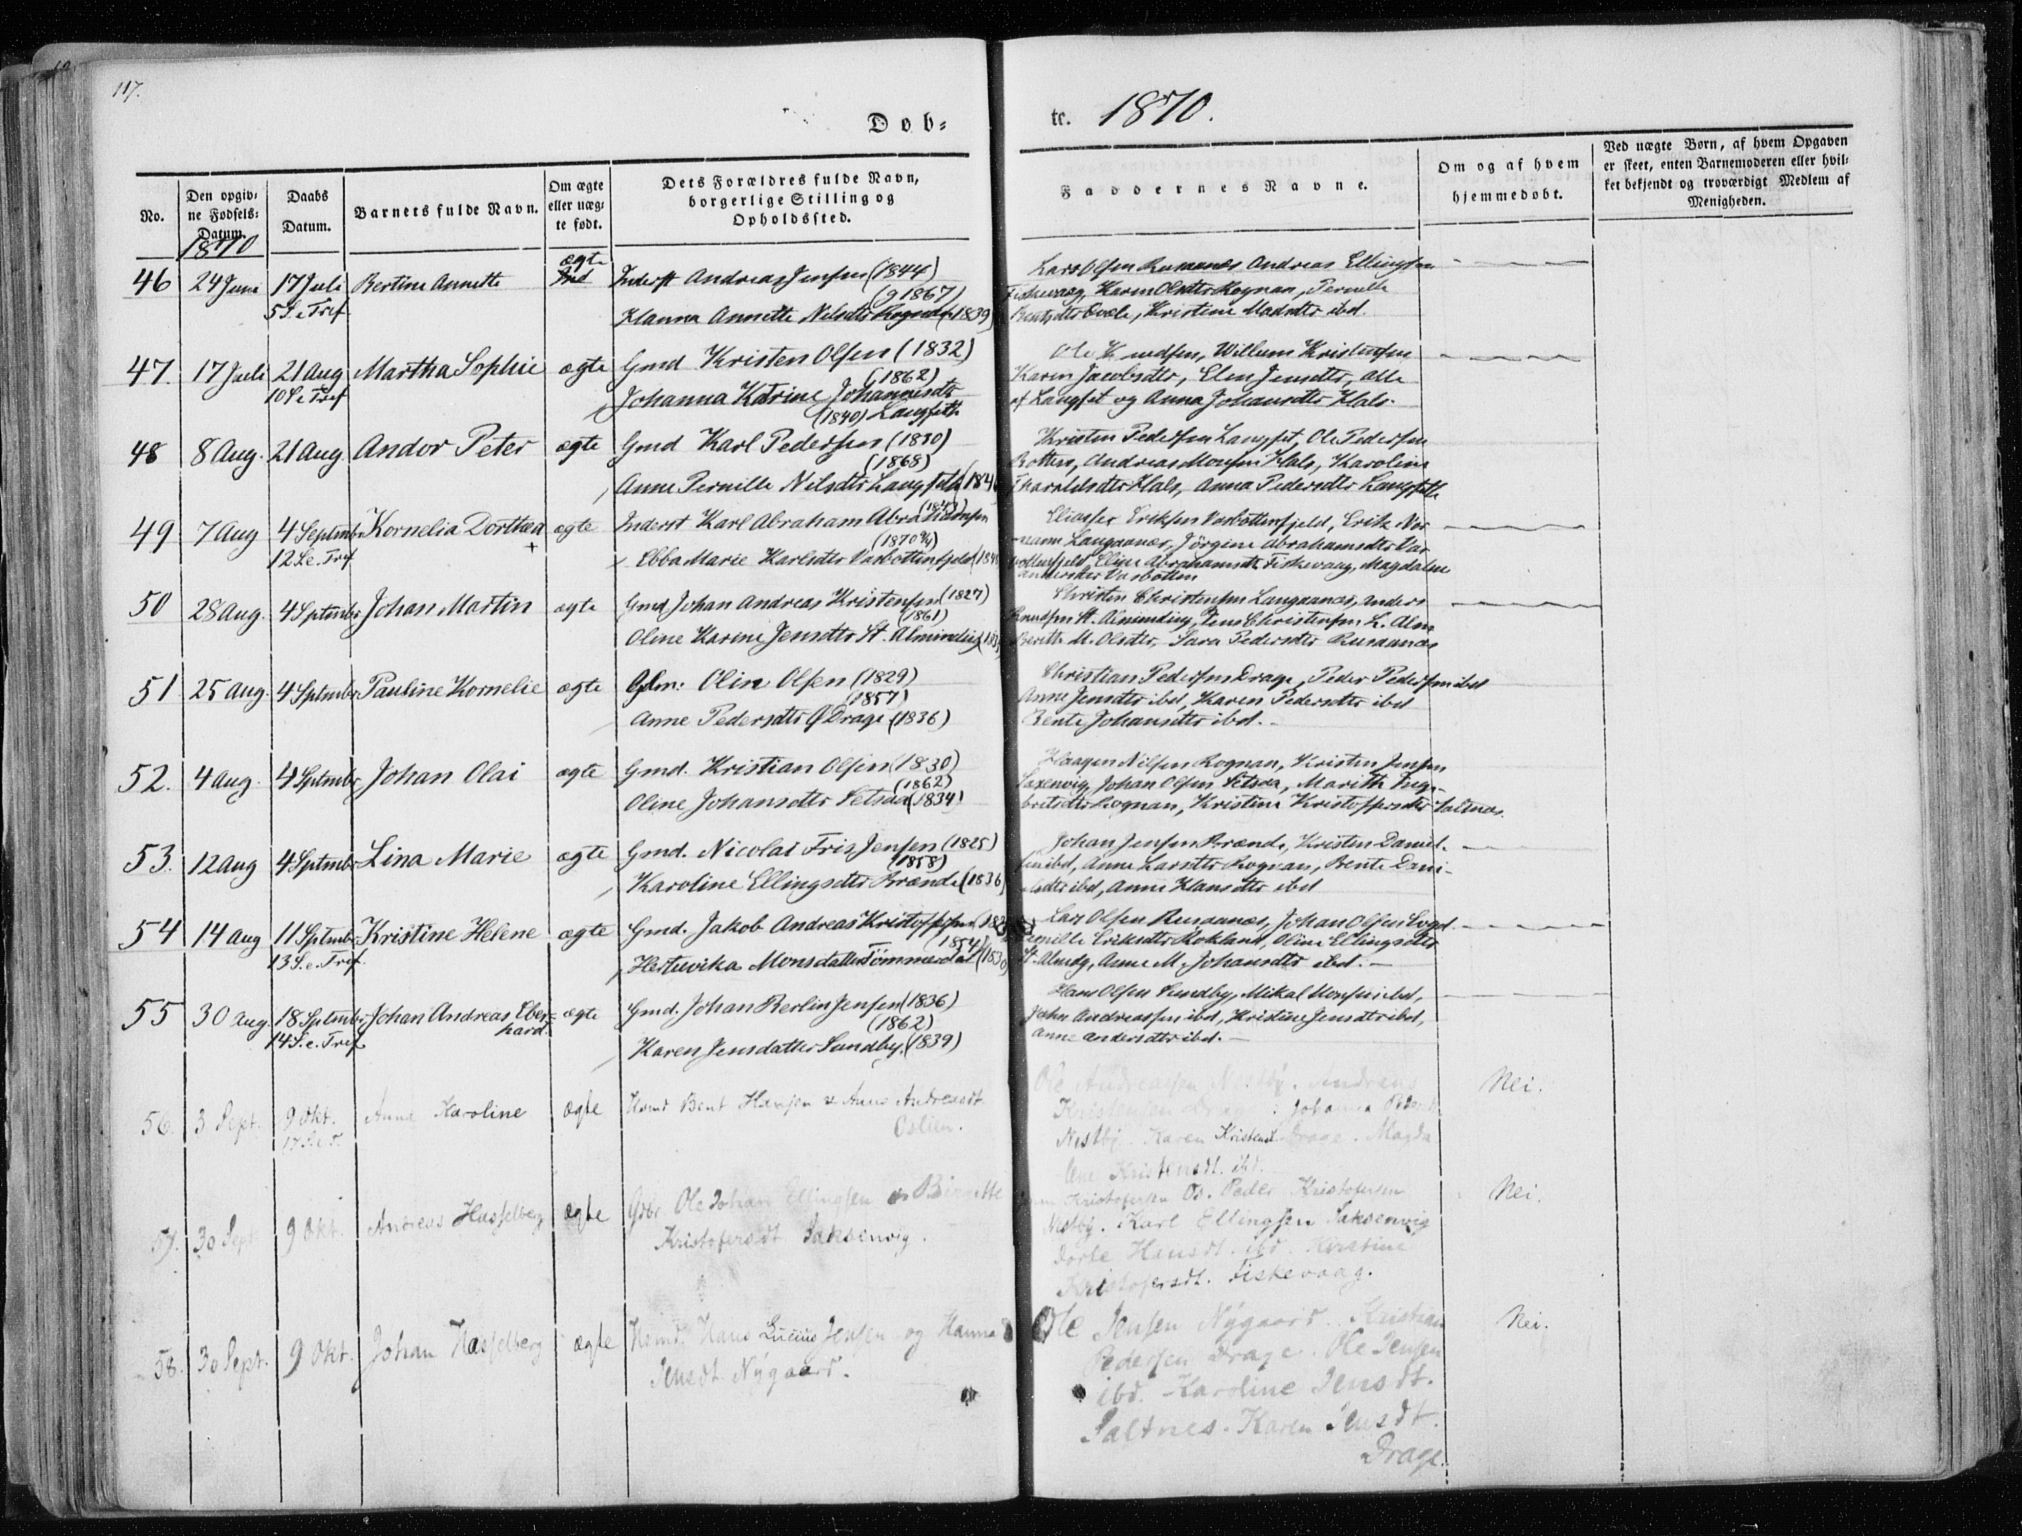 117.
Døb=
te. 1870.
No.
Den opgiv=
ne Fødsels=
Datum.
Daabs
Datum.
Barnets fulde Navn.
Om ægte
eller uæg=
te født.
Dets Forældres fulde Navn,
borgerlige Stilling og
Opholdssted.
Faddernes Navne.
Om og af hvem
hjemmedøbt.
Ved uægte Børn, af hvem Opgaven
er skeet, enten Barnemoderen eller hvil=
ket bekjendt og troværdigt Medlem af
Menigheden.
1870
46 24 Juni 17 Juli Bertine Annette ægte Inderst Andreas Jensen (1844)
5 S. e. Tref. (g 1867)
Hanna Annette Nilsdtr Rognan (1839)
Lars Olsen Rusaanes Andreas Ellingsen
Fiskevaag, Karen Olsdtr Rognan, Pernille
Bentsdtr Evele, Kristine Madsdtr ibd.
47. 17 Juli 21 Aug Martha Sophie ægte Gmd Kristen Olsen (1832)
10 S. e. Tref (1862)
Johanna Katrine Johannesdtr
(1840) Langseth
Willum Kristensen
Karen Jacobsdtr, Elen Jensdtr, alle
af Langset og Anna Johansdtr Hals.
48 8 Aug. 21 Aug Andor Peter ægte Gmd Karl Pedersen (1830)
(1868)
Anne Pernille Nilsdtr Langseth (184
Kristen Pedersen Langset, Ole Pedersen
Botten, Andreas Monsen Hals, Karoline
Haraldsdtr Hals, Anna Pedersdtr Langseth
49 7 Aug 4 Septmbr Kornelia Dorthea ægte Inderst Karl Abraham Abrahamsen
12 S. e. Tref + (1870
Ebba Marie Karlsdtr Vasbottenfjeld (184
Eliasser Eriksen Vasbottenfjeld, Erik Nor
mann Langaanes, Jörgine Abrahamsdtr Vas
bottenfjeld, Eline Abrahamsdtr Fiskevaag, Magdalene
Andersdtr Vasbotten
50 28 Aug. 4 Septmbr Johan Martin ægte Gmd Johan Andreas Kristensen (1827)
(1861)
Oline Karine Jensdtr St. Alminding (183
Christen Christensen Langaanes, Anders
Knudsen St. Alminding, Jens Christensen L. Alm
Berith M. Olsdtr, Sara Pedersdtr Rusaanes
51 25 Aug. 4 Sptmbr Pauline Kornelie ægte Gdm: Olin Olsen (1829)
(1857)
Anne Pedersdtr Drage (1836)
Christian Pedersen Drage, Peder Pedersen ibd
Anne Jensdtr ibd, Karen Pedersdtr ibd
Bente Johansdtr ibd. –
52. 4 Aug. 4 Sptmbr Johan Olai ægte Gmd. Kristian Olsen (1830)
(1862)
Oline Johansdtr Setsaa (1834)
Haagen Nilsen Rognan, Kristen Jensen
Saxenvig, Johan Olsen Setsaa, Marith Inge-
brietsdtr Rognan, Kristine Kristoffersdtr Saltnes.
53. 12 Aug 4 Sptmbr Lina Marie ægte Gmd. Nicolai Fris Jensen (1825)
(1858)
Karoline Ellingsdtr Brænde (1836
Johan Jensen Brænde, Kristen Daniel-
sen ibd, Anne Larsdtr Rognan, Bente Dani-
elsdtr ibd, Anne Hansdtr ibd
54 14 Aug 11 Septmbr Kristine Helene ægte Gmd. Jakob Andreas Kristoffersen (18
13 S. e. Tref. (1854)
Hertevika Monsdatter Tømmerdal (1830)
Lars Olsen Rusaanes, Johan Olsen
Pernille Eriksdtr Rokland, Oline Ellingsdtr
St. Almdg, Anne M. Johansdtr ibd. –
55 30 Aug. 18 Septmbr Johan Andreas Eber-
hard. ægte Gmd. Johan Berlin Jensen (1836)
14 S. e. Tref (1862)
Karen Jensdatter Sundby. (1839)
Hans Olsen Sundby, Mikal Monsen ibd,
John Andreassen ibd, Kristine Jensdtr ibd,
Anne Andersdtr ibd. –
56. 3 Sept. 9 Okt. Anna Karoline ægte Hsmd Bent Hansen & Anne Andreasdt.
17 S. e. T. Oslien.
Ole Andreassen Nestby. Andreas
Johanna
Nestby. Karen Kristensd. Drage. Magda
lene Kristensdt. ibd.
Nei.
57. 30 Sept 9 Okt. Andreas Hasselberg ægte Gdbr. Ole Johan Ellingsen & Birgitte
Kristofersdt Saksenvig.
Kristofersen Os. Peder Kristofersen
Nestby. Karl Ellingsen Saksenvig
Dorte Hansdt. ibd. Kirstine
Kristofersdt. Fiskevaag.
Nei.
58. 30 Sept. 9 Okt. Johan Hasselberg ægte Hsmd. Hans Lucius Jensen og Hanna
Jensdt. Nygaard.
Ole Jensen Nygaard. Kristian
Pedersen Drage. Ole Jensen
ibd. Karoline Jensdt.
Saltnes. Karen Jensdt.
Drage.
Nei.